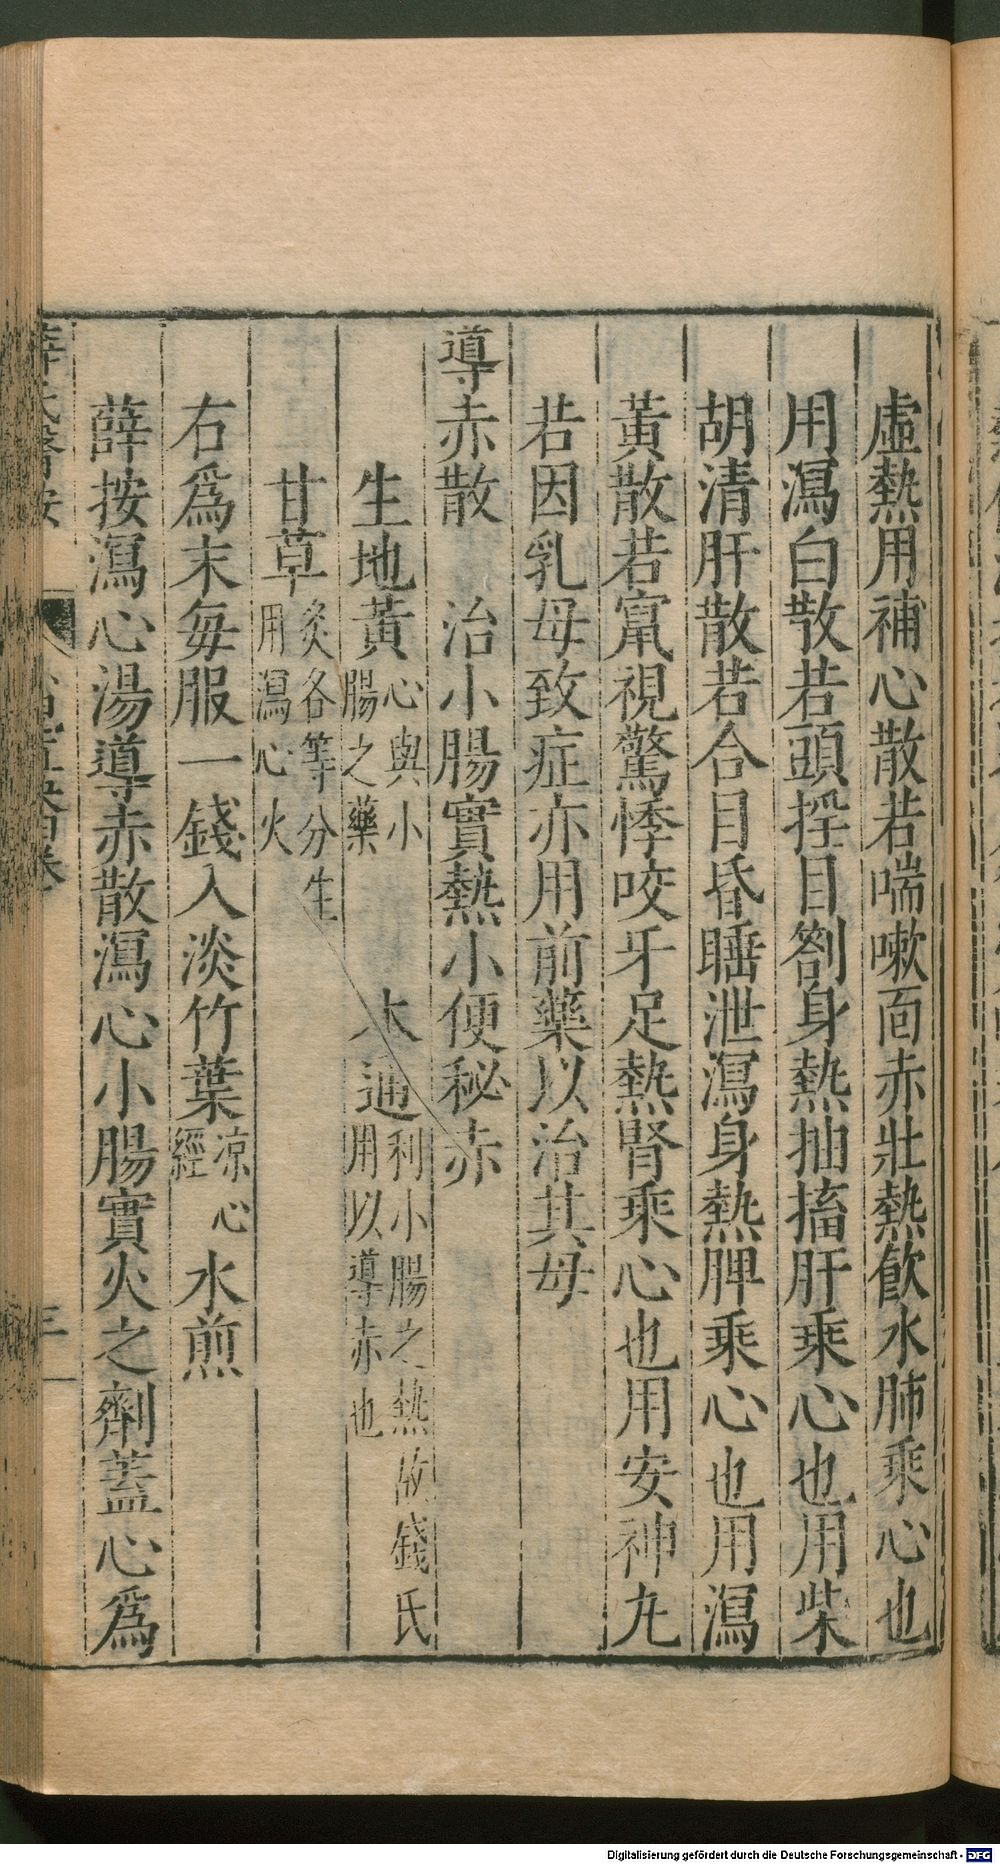 虛熱用補心散若喘嗽面赤壯熱飲水肺乘心也
用瀉白散若頭㨒目劄身熱抽搐肝乘心也用柴
胡清肝散若合目昏睡泄瀉身熱脾乘心也用瀉
黃散若竄視驚悸咬牙足熱腎乘心也用安神丸
若因乳母致症亦用前藥以治其母
導赤散　治小腸實熱小便秘赤
生地黃心與小腸之藥　木通利小腸之熱故錢氏用以導赤也
甘草炙各等分生用瀉心火
右爲末每服一錢入淡竹葉凉心經水煎
薛按瀉心湯導赤散瀉心小腸實火之劑蓋心爲
Digitalisierung gefördert durch die Deutsche Forschungsgemeinschaft - DFG